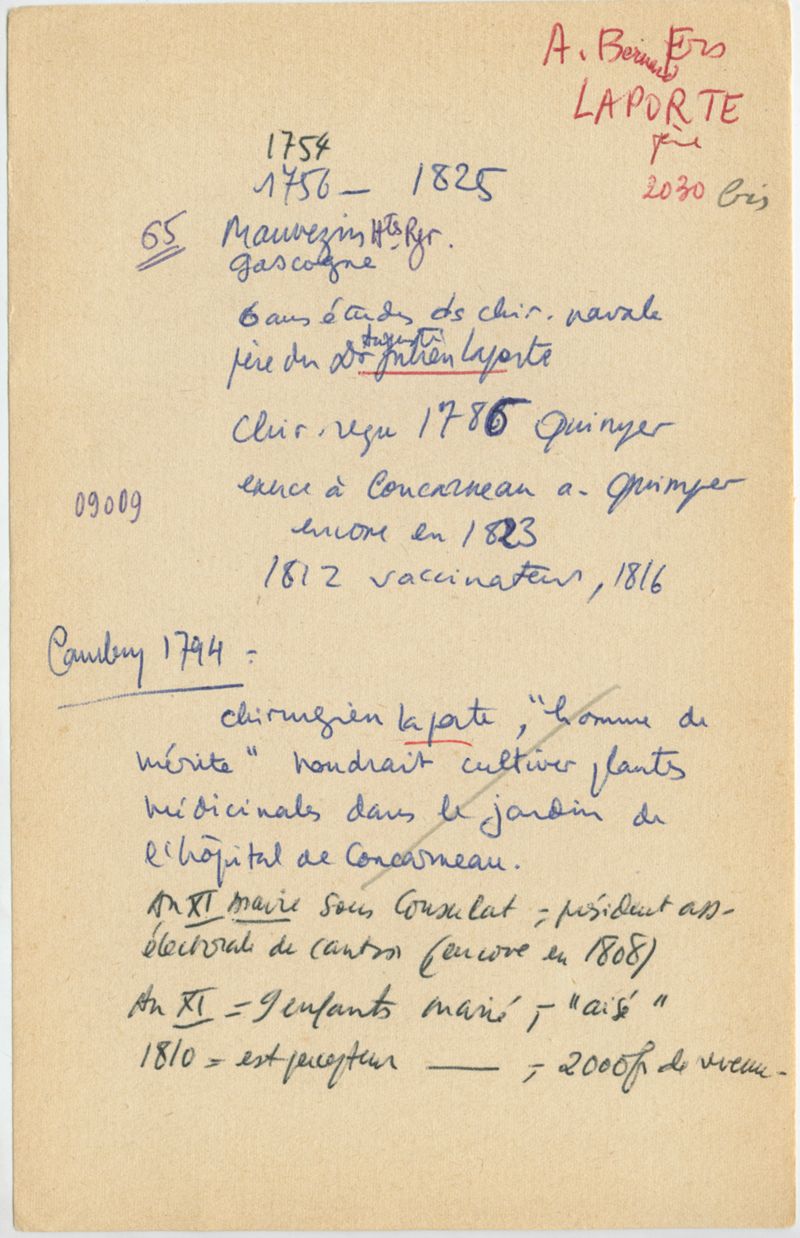 A. Bernard Frs
LAPORTE
père
2030 bis
1754
1756 — 1825
65 Mauvezin Htes Pyr.
Gascogne
6 ans études ds chir. navale
Augustin
père du Dr Julien Laporte
Chir. reçu 1786 Quimper
exerce à Concarneau a. Quimper
09009
encore en 1823
1812 vaccinateur, 1816
Cambry 1794 =
chirurgien Laporte, "homme de
mérite" voudrait cultiver plantes
médicinales dans le jardin de
l'hôpital de Concarneau.
An XI maire sous Consulat - président ass-
électorale de canton (encore en 1808)
An XI = 9 enfants marié, - "aisé"
1810 = est percepteur — , - 2000f de revenu -